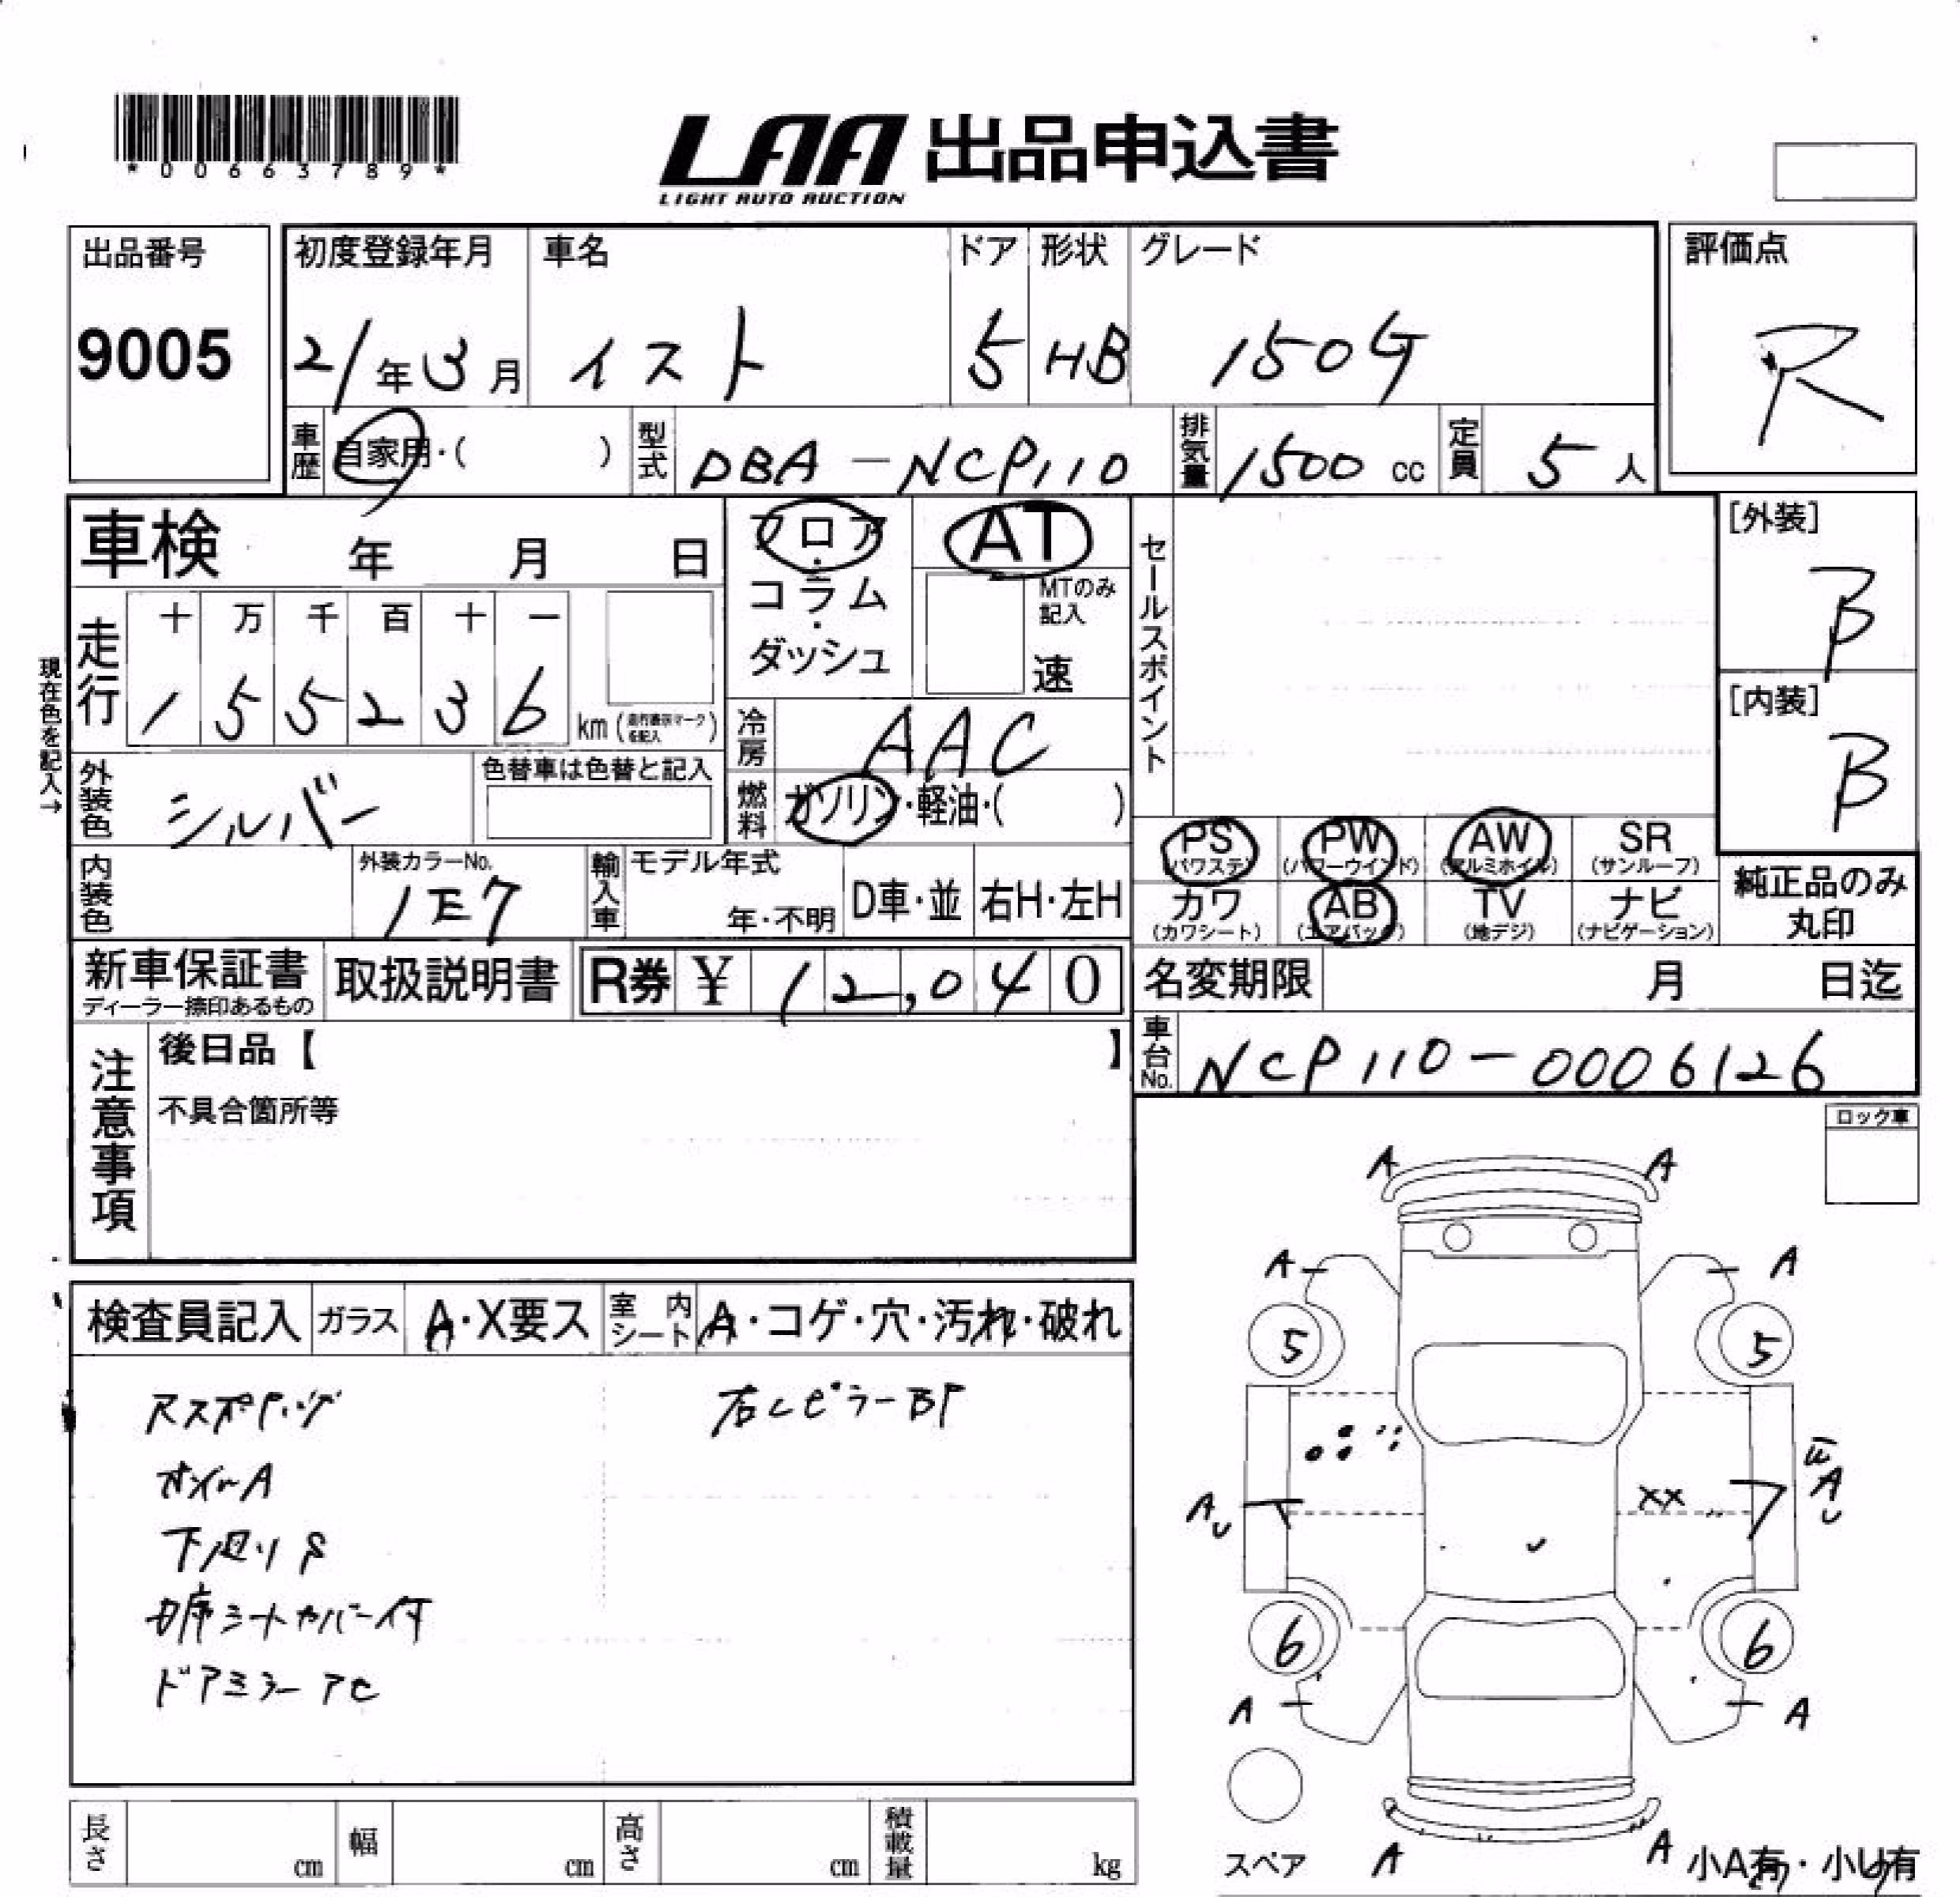 *00663789*
LAA 出品申込書
LIGHT AUTO AUCTION
出品番号
9005
初度登録年月
21年3月
車名
イスト
ドア
5
形状
HB
グレード
150G
評価点
R
車歴 自家用・( )
型式 DBA-NCP110
排気量 1500cc
定員 5人
車検 年 月 日
フロア・コラム・ダッシュ
AT
MTのみ記入
速
セールスポイント
[外装]
B
[内装]
B
現在色を記入→
走行
十 万 千 百 十 一
1 5 5 2 3 6 km (走行表示マークを記入)
冷房 AAC
燃料 ガソリン・軽油・( )
外装色 シルバー
色替車は色替と記入
内装色
外装カラーNo.
1E7
輸入車 モデル年式
年・不明 D車・並 右H・左H
PS (パワステ) PW (パワーウインド) AW (アルミホイル) SR (サンルーフ)
カワ (カワシート) AB (エアバッグ) TV (地デジ) ナビ (ナビゲーション)
純正品のみ丸印
新車保証書
ディーラー捺印あるもの
取扱説明書
R券 ¥ 12,040
名変期限 月 日迄
車台No. NCP110-0006126
注意事項
後日品【 】
不具合箇所等
ロック車
検査員記入 ガラス A・X要ス 室内シート A・コゲ・穴・汚れ・破れ
オイルA
下廻りS
シートカバー付
ドアミラー
右Cピラー
A A
A A
5 5
AU
XX
AU
6 6
A A
A A
スペア
小A有・小U有
長さ cm 幅 cm 高さ cm 積載量 kg